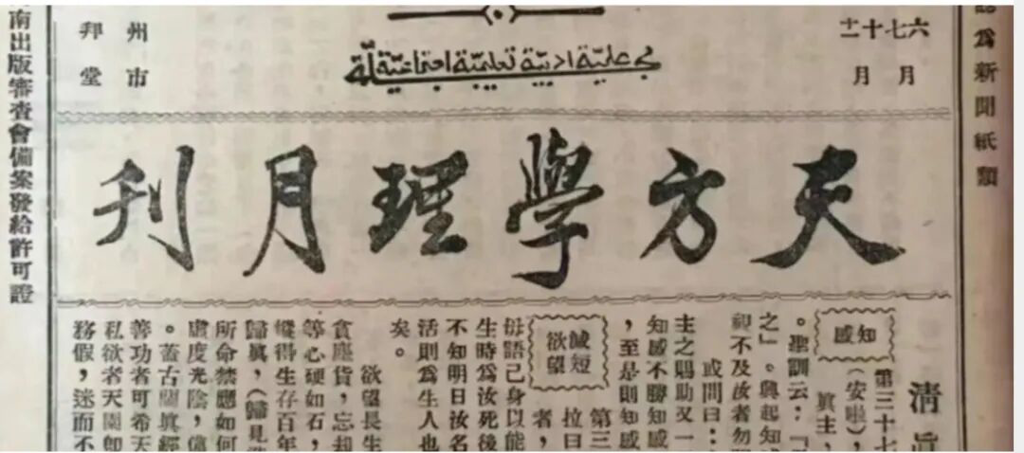 為新聞紙類
六七
月
十二
月
علمية ادبية تعليمية اجتماعية
州市
拜堂
天方學理月刊
清真
知感
第三十七
(安啦),
真主,
。聖訓云:「
之」。與起知
視不及汝者勿
或問曰:
主之賜助又一
知感不勝知感
,至是則知感
減短
欲望
第三
拉曰
者,
母語己身以能
生時為汝死後
不知明日汝名
活則為生人也
矣。
欲望長生
貪塵貨,忘却
等心硬如石,
縱得生存百年
歸真,(歸見
所命禁應如何
虛度光陰,
。蓋古蘭真經
善功者可希天
私欲者天園卽
務假,迷而不
南出版審查會備案發給許可證